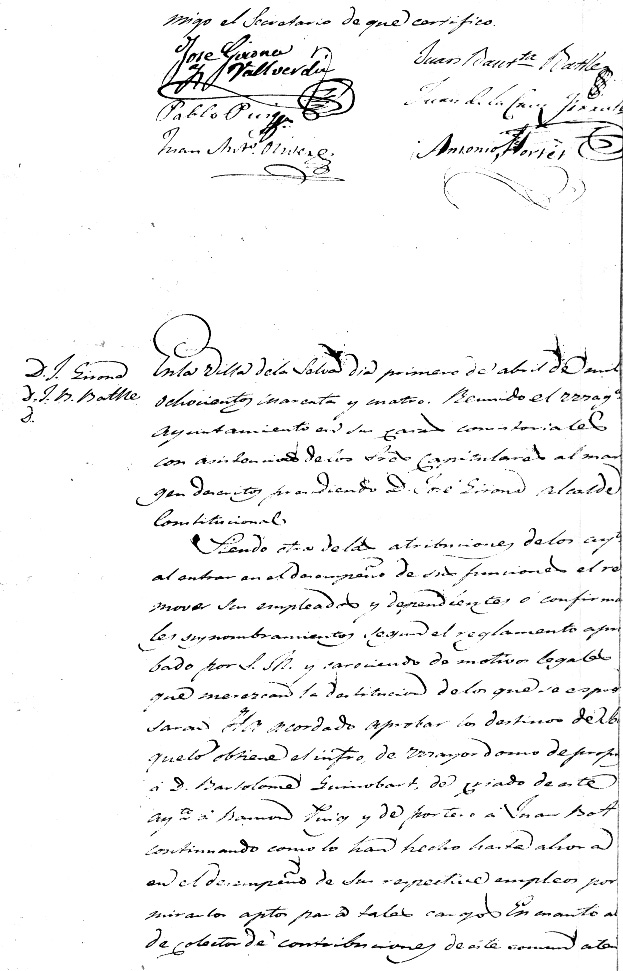 migo el Secretario de que certifico.
Jose Girona
y Vallverdú
Juan Baut.ta Batlle
Pablo Puig
Juan de la Cruz
Juan Ant.o Oliver
Antonio Hortet
D. J. Girona
D. J. B. Batlle
D.
En la Villa de la Selva dia primero de abril de mil
ochocientos cuarenta y cuatro. Reunido el Mag.o
ayuntamiento en su casa consistoriales
con asistencia de los Sres Capitulares al mar
gen descritos presidiendo D. José Girona alcalde
Constitucional.
Siendo otra de las atribuciones de los ayt
al entrar en el desempeño de sus funciones el re
mover sus empleados y dependientes ó confirmar
les sus nombramientos segun el reglamento apro
bado por S. M. y careciendo de motivos legales
que merezcan la destitucion de los que se espre
saran Ha acordado aprobar los destinos de
que lo obtiene el infro, de Mayordomo de propi
á D. Bartolomé Guinobart, de criado de este
ay.to á Ramon Puig y de portero a Juan Bat
continuando como lo han hecho hasta ahora
en el desempeño de sus respective empleos por
mirarlos aptos para tales cargos. En cuanto al
de colector de contribuciones de este comun aten